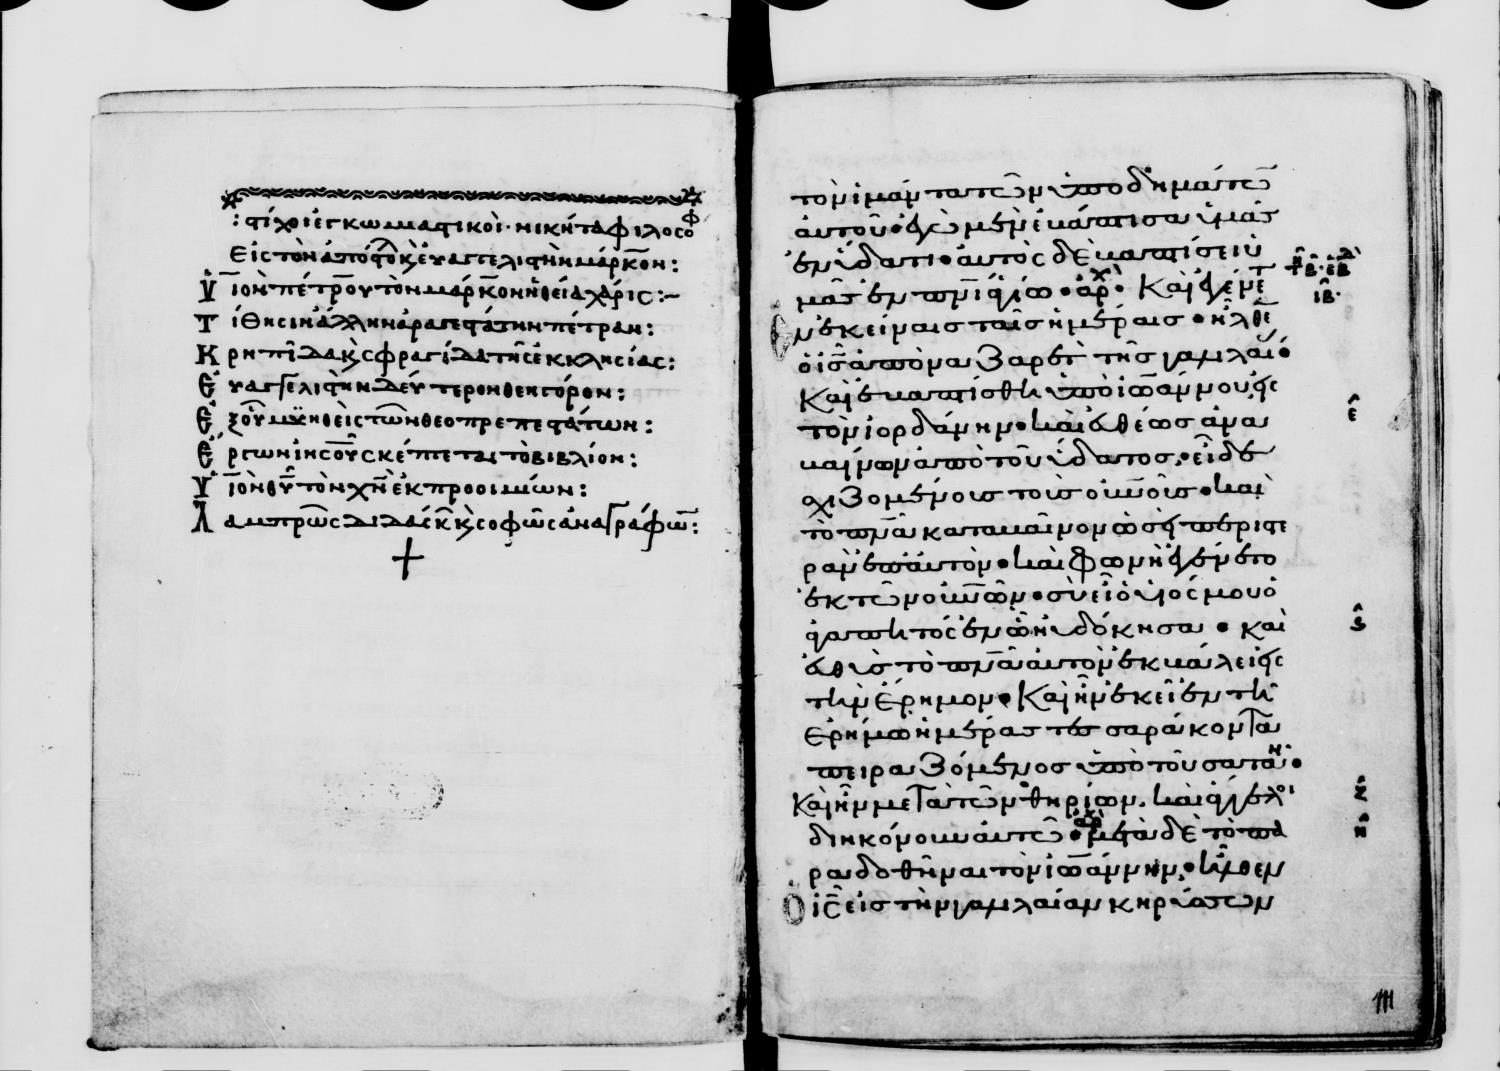 στίχοι ἐγκωμιαστικοὶ· νικήτα φιλοσόφ
Εἰς τὸν ἀπόστολ κ εὐαγγελιστὴν μάρκον:
Υἱὸν πέτρου τὸν μάρκον ἡ θεία χάρις:~
Τίθησιν ἄλλην ἀραγεστάτην πέτραν:
Κρηπῖδα κ σφραγίδα τῆς ἐκκλησίας:
Εὐαγγελιστὴν δεύτερον θεηγόρον:
Ἐξ οὗ μυηθεὶς τῶν θεοπρεπεστάτων:
Ἔργων ἰησοῦς κέπτεται τὸ βιβλίον:
Υἱὸν θῦ τὸν χν ἐκ προοιμίων:
Λαμπρῶς διδάσκ κ σοφῶς ἀναγράφων:
+
τὸν ἱμάντα τῶν ὑποδημάτω
αὐτοῦ· ἐγὼ μὲν ἐβάπτισα ὑμᾶς
ἐν ὕδατι· αὐτὸς δὲ βαπτίσει ὑ
μᾶς ἐν πνι ἁγίω· ἀρχ· Καὶ ἐγένετ
ἐν ἐκείναις ταῖς ἡμέραις· ἦλθε
ὁ ις ἀπὸ ναζαρὲτ τῆς γαλιλαί·
Καὶ ἐβαπτίσθη ὑπὸ ἰωάννου εἰς
τὸν ἰορδάνην· καὶ εὐθέως ἀνα
βαίνων ἀπὸ τοῦ ὕδατος· εἶδε
σχιζομένους τοὺς οὐνοὺς· καὶ
τὸ πνα καταβαῖνον ὡσεὶ περιστε
ρὰν ἐπ αὐτὸν· καὶ φωνὴ ἐγένετο
ἐκ τῶν οὐνῶν· σὺ εἶ ὁ υἱός μου ὁ
ἀγαπητός ἐν ᾧ ηὐδόκησα· καὶ
εὐθὺς τὸ πνα αὐτὸν ἐκβάλει εἰς
τὴν ἔρημον· Καὶ ἦν ἐκεῖ ἐν τῇ
ἐρήμω ἡμέρας τεσσαράκοντα
πειραζόμενος ὑπὸ τοῦ σατανα·
Καὶ ἦν μετὰ τῶν θηρίων, καὶ ἄγγελοι
διηκόνουν αὐτῶ· ἀρχ μετὰ δὲ τὸ πα
ραδοθῆναι τὸν ἰωάννην· ἦλθεν
ὁ ις εἰς τὴν γαλιλαίαν κηρύσσων
ιβ·
ε
ς
ζ
η
111